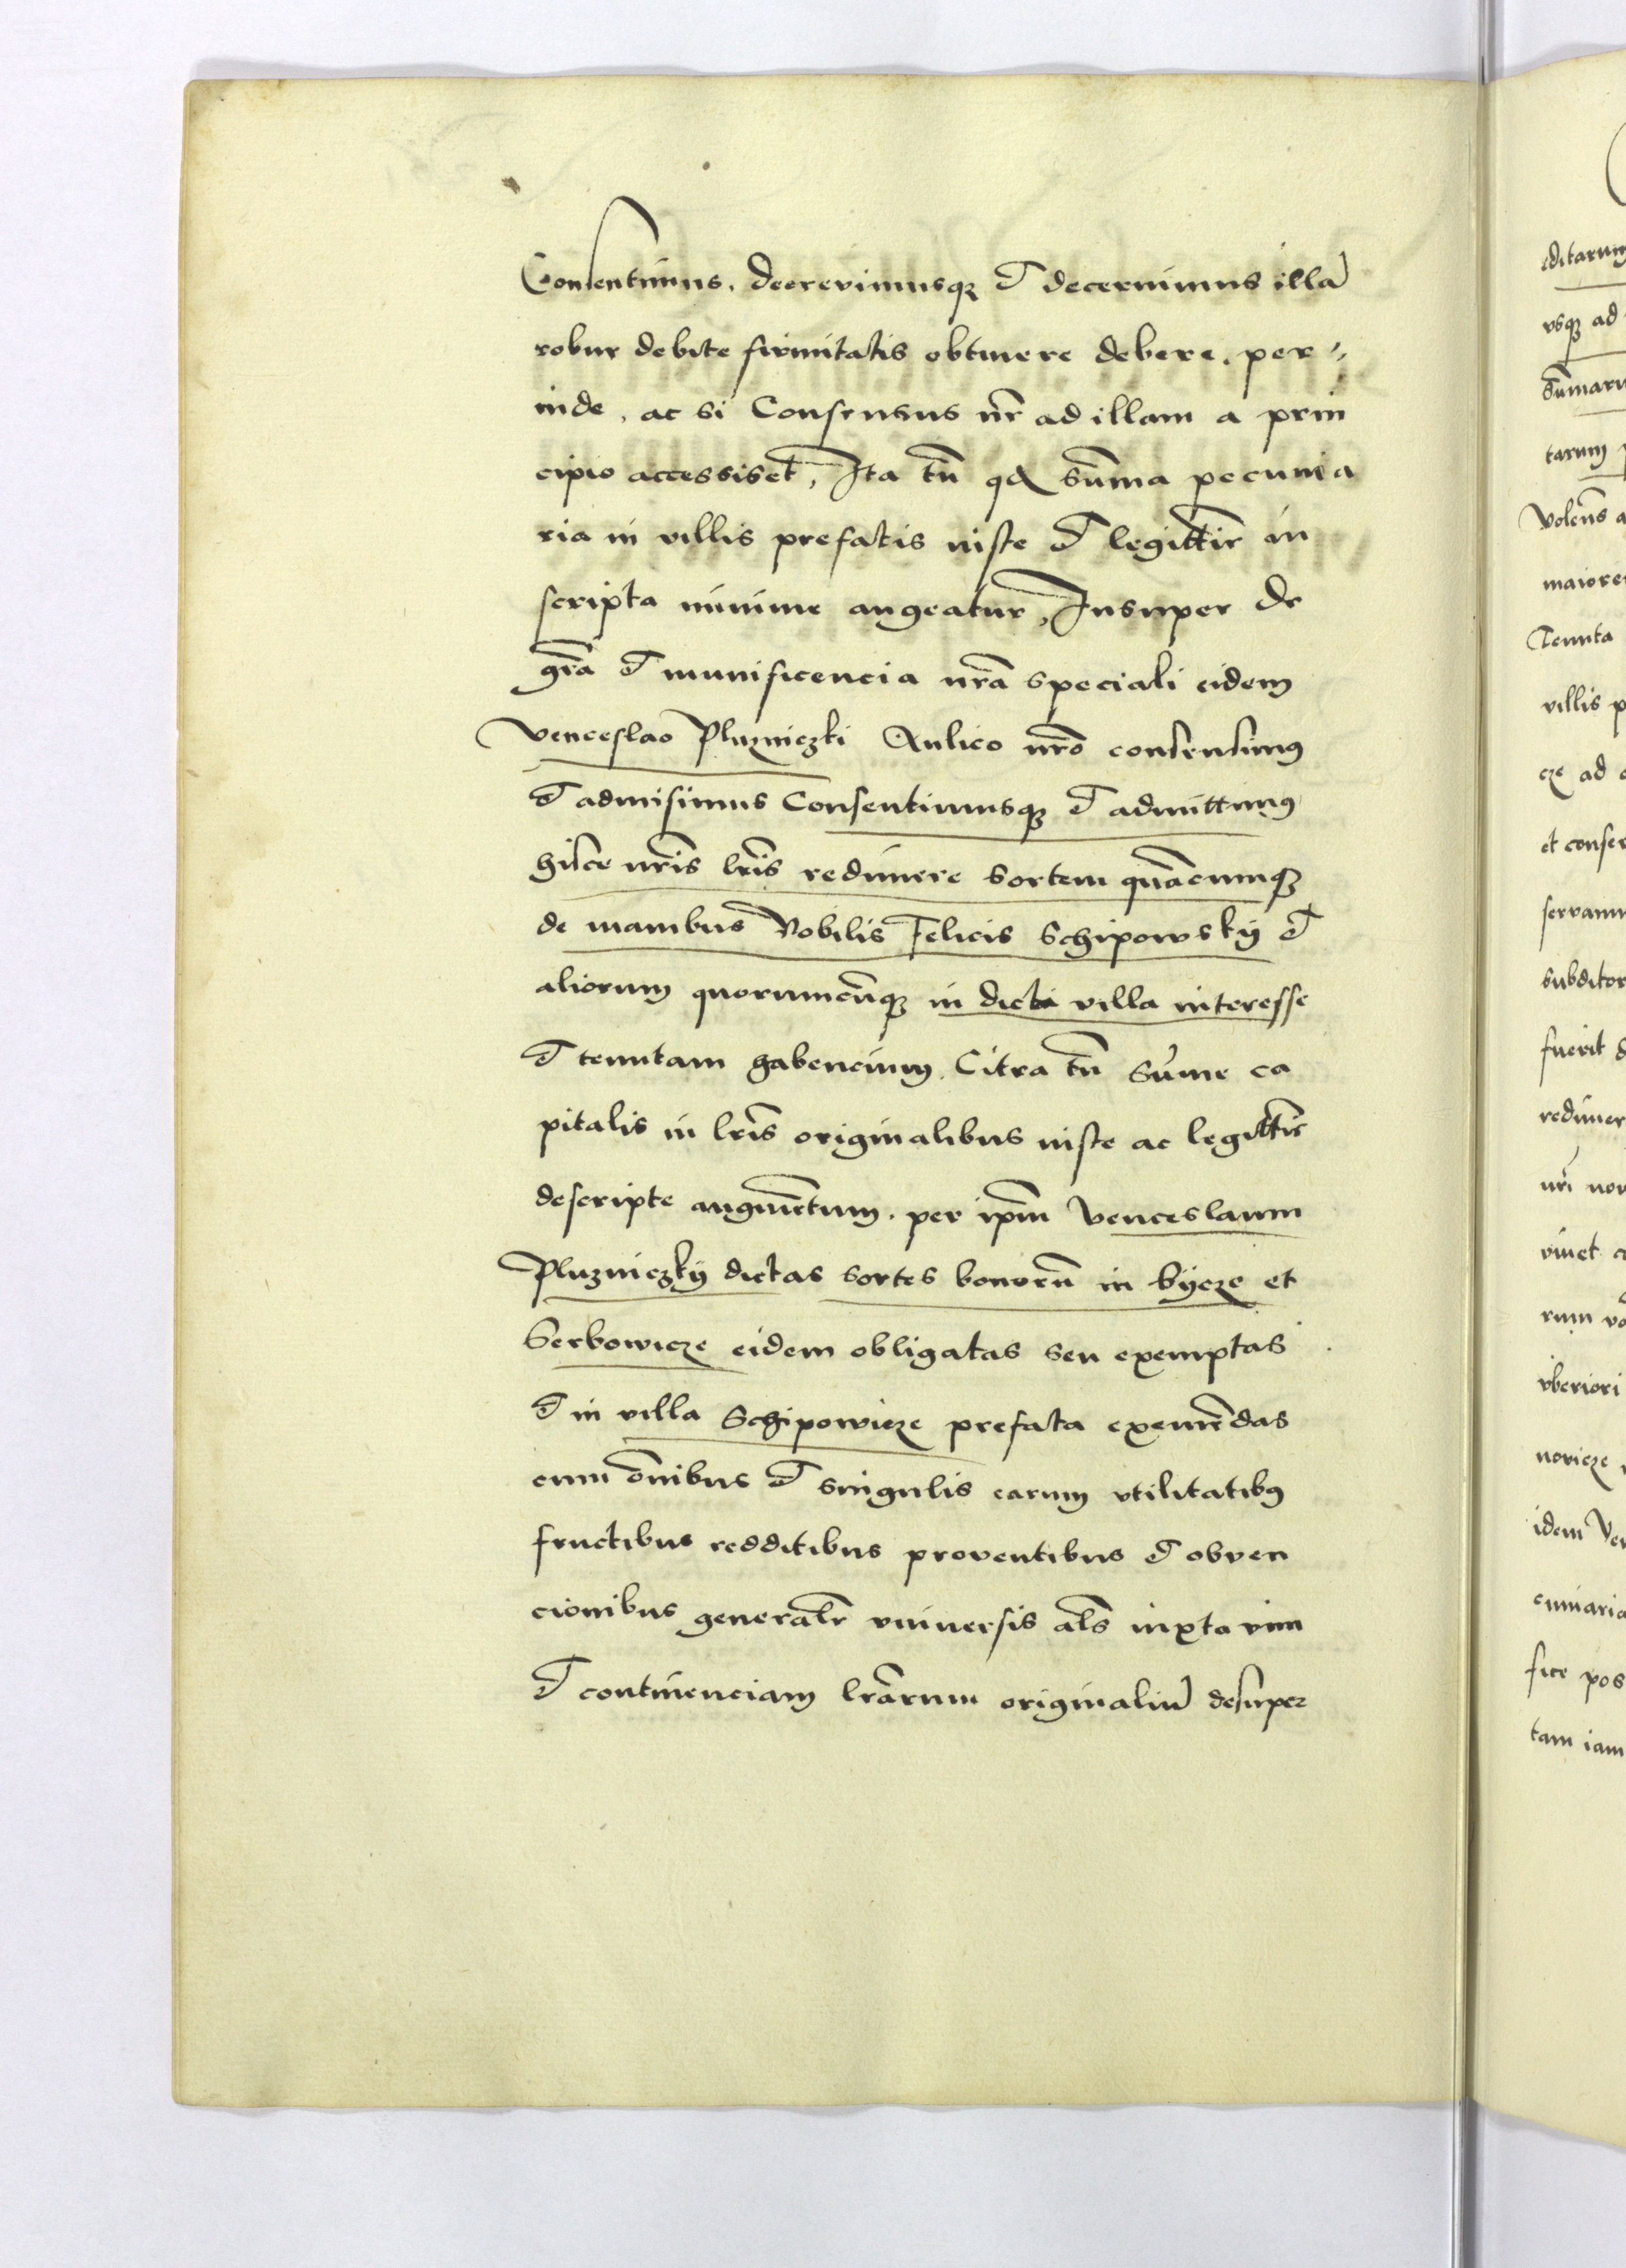 Consentimus. decrevimusq₃ et decernimus illā
robur debite firmitatis obtinere debere. per⸗
inde, ac si Consensus nr̄ ad illam a prin
cipio accessisset, Ita tn̄ qd summa pecunia
ria in villis prefatis iuste et legittīe in
scripta minime augeatur, Insuper de
gr̄a et munificencia nr̄a speciali eidem
Venceslao Pluzniczki Aulico nr̄o consensimus
et admisimus Consentimusq₃ et admittimus
hisce nr̄is lr̄is redimere sortem quācumq₃
de manibus Nobilis Felicis Schipowskÿ et
aliorum quorumcūq₃ in dicta villa interesse
et tenutam habencium. Citra tn̄ sūme ca
pitalis in lr̄is originalibus iuste ac legittīe
descripte augmētum. per ip̄m Venceslaum
Pluzniczkÿ dictas sortes bonorū in bÿcze et
Serbowicze eidem obligatas seu exemptas
et in villa Schipowicze prefata eximēdas
cum om̄nibus et singulis earum vtilitatibꝰ
fructibus redditibus proventibus et obven
cionibus generalr̄ vniuersis als̄ iuxta vim
et continenciam lr̄arum originaliū desuper
editarum
vsq₃ ad
sūmaru
tarum
Volens a
maiore
Tenuta
villis p
cze ad
et conser
servam
subditor
fuerit
redimer
nr̄i non
viuet
rum
vberiori
novicze
idem Ven
cuniaria
fice pos
tam iam